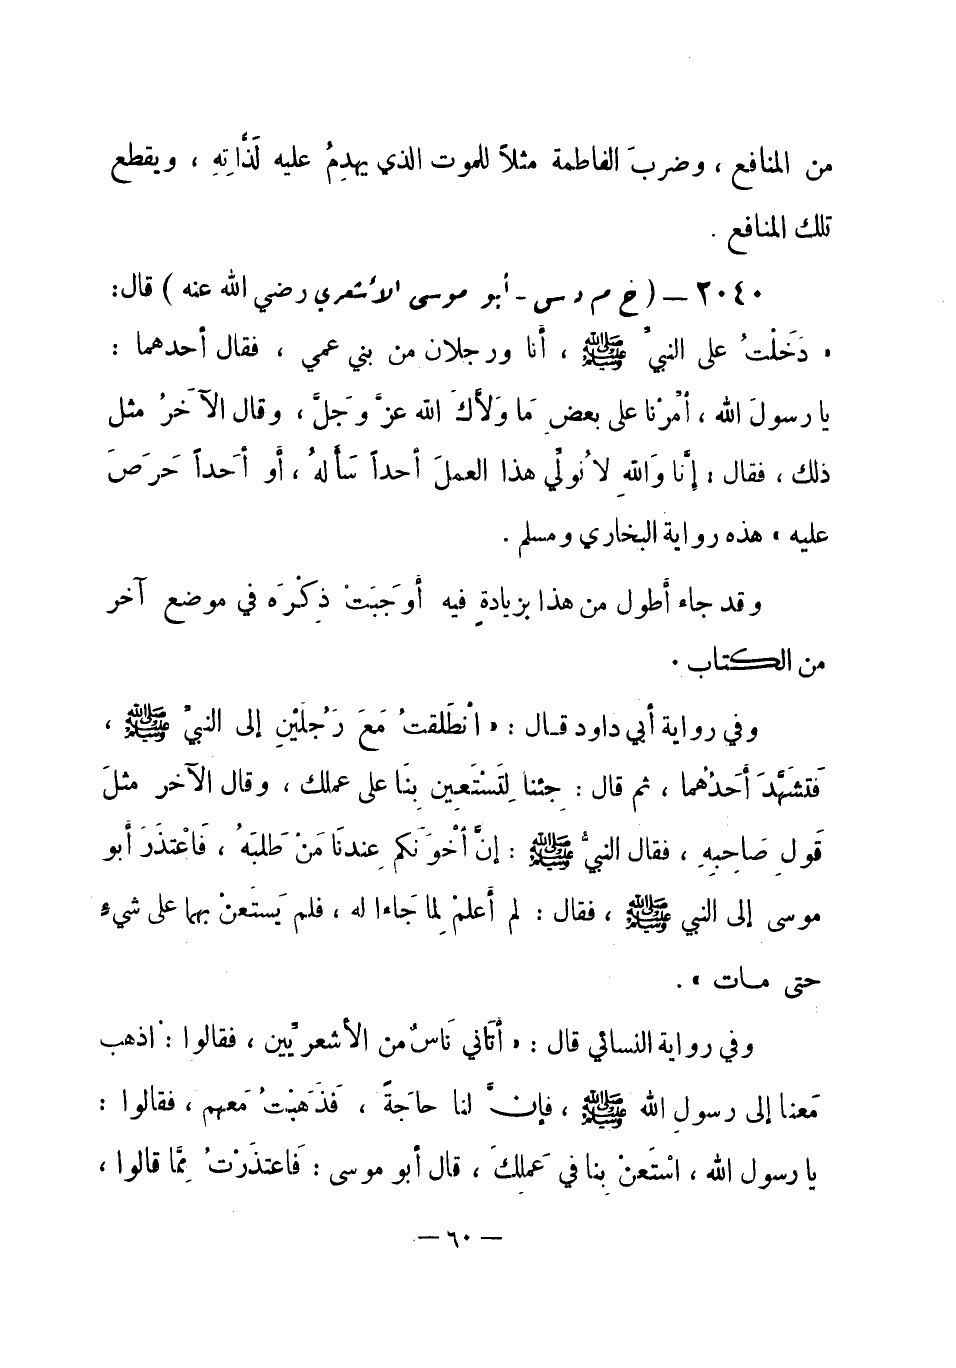 من المنافع ، وضربَ الفاطمة مثلاً للموت الذي يهدِمُ عليه لَذَّاتِهِ ، ويقطع
تلك المنافع .
٢٠٤٠ – ( خ م د س - أبو موسى الأشعري رضي الله عنه ) قال :
« دَخَلْتُ على النبيِّ ﷺ ، أنا ورجلان من بني عمي ، فقال أحدهما :
يا رسولَ الله ، أمِّرْنا على بعضِ مَا وَلاَّكَ الله عزَّ وَجلَّ ، وقال الآخَرُ مثل
ذلك ، فقال : إنَّا وَاللهِ لا نُولِّي هذا العملَ أحداً سَأَلهُ ، أو أحَداً حَرِصَ
عليه » هذه رواية البخاري ومسلم .
وقد جاء أطول من هذا بزيادةٍ فيه أوجَبَتْ ذِكْرَه في موضع آخر
من الكتاب .
وفي رواية أبي داود قـال : « انْطَلَقتُ مَعَ رَجُلَيْنِ إلى النبيِّ ﷺ ،
فَتشَهَّدَ أحَدُهما ، ثم قال : جِئنا لِتَسْتَعِين بِنَا على عملك ، وقال الآخر مثلَ
قَولِ صَاحِبِهِ ، فقال النبيُّ ﷺ : إنَّ أخْوَنَكم عِندنَا مَنْ طَلبَهُ ، فَاعْتذَرَ أبو
موسى إلى النبي ﷺ ، فقال : لم أعلمْ لِما جَاءا له ، فلم يَستَعنْ بهما على شيءٍ
حتى مـات » .
وفي رواية النسائي قال : « أتَاني نَاسٌ من الأشعريِّين ، فقالوا : اذهب
مَعنا إلى رسولِ الله ﷺ ، فإنَّ لنا حاجَةً ، فَذَهبْتُ مَعهم ، فقالوا :
يا رسول الله ، اسْتَعنْ بِنا في عَملِكَ ، قال أبو موسى : فَاعتذَرْتُ مِمَّا قالوا ،
– ٦٠ –